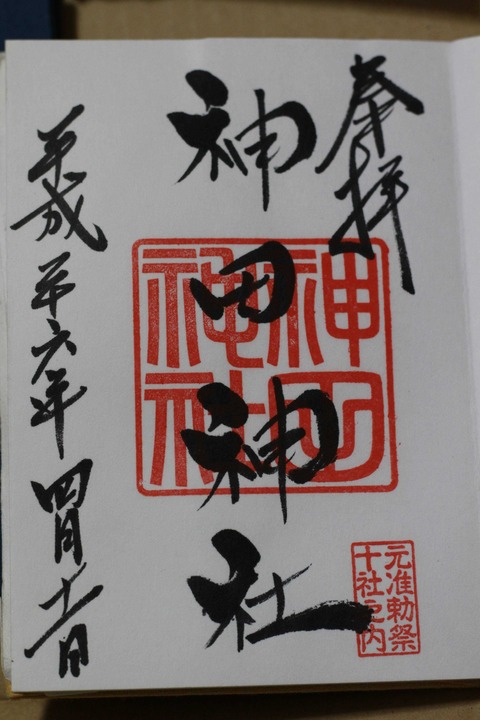 奉拝
神田神社
神田
神社
元准勅祭
十社之内
平成廿六年四月十一日